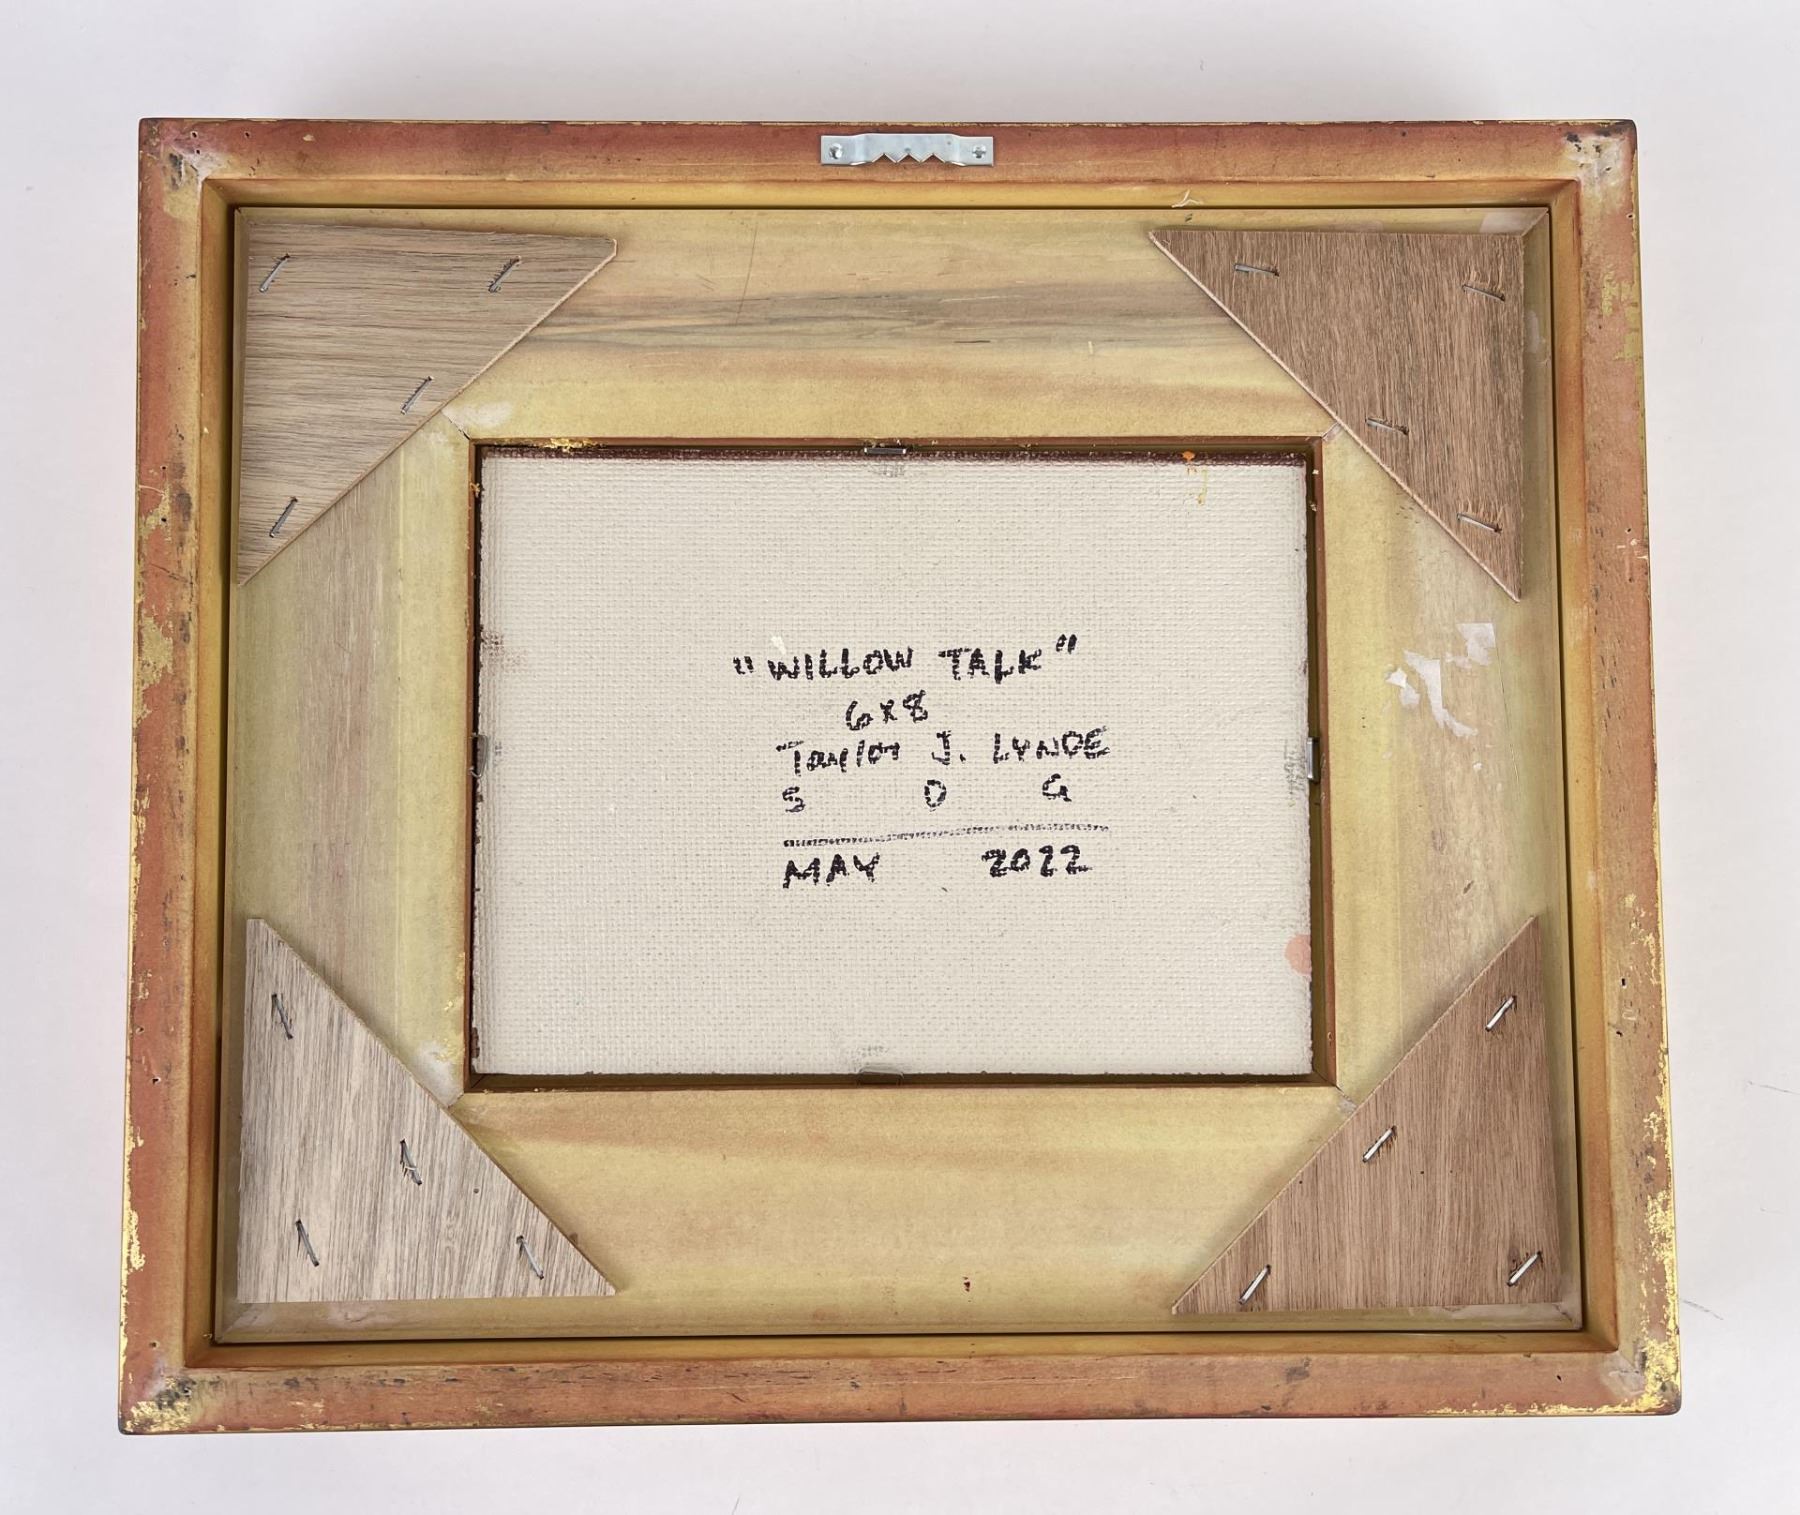 "WILLOW TALK"
6x8
Taylor J. LYNDE
S D G
MAY 2022